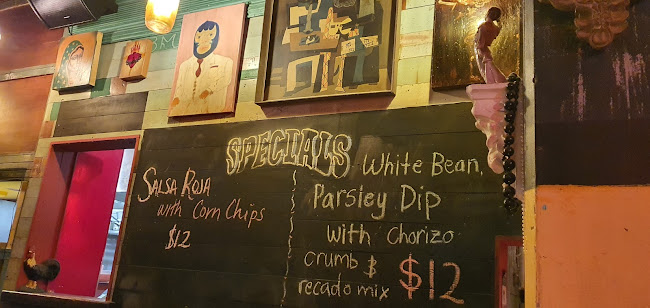 SPECIALS
SALSA ROJA
with Corn Chips
$12
White Bean,
Parsley Dip
with Chorizo
crumb &
recado mix $12